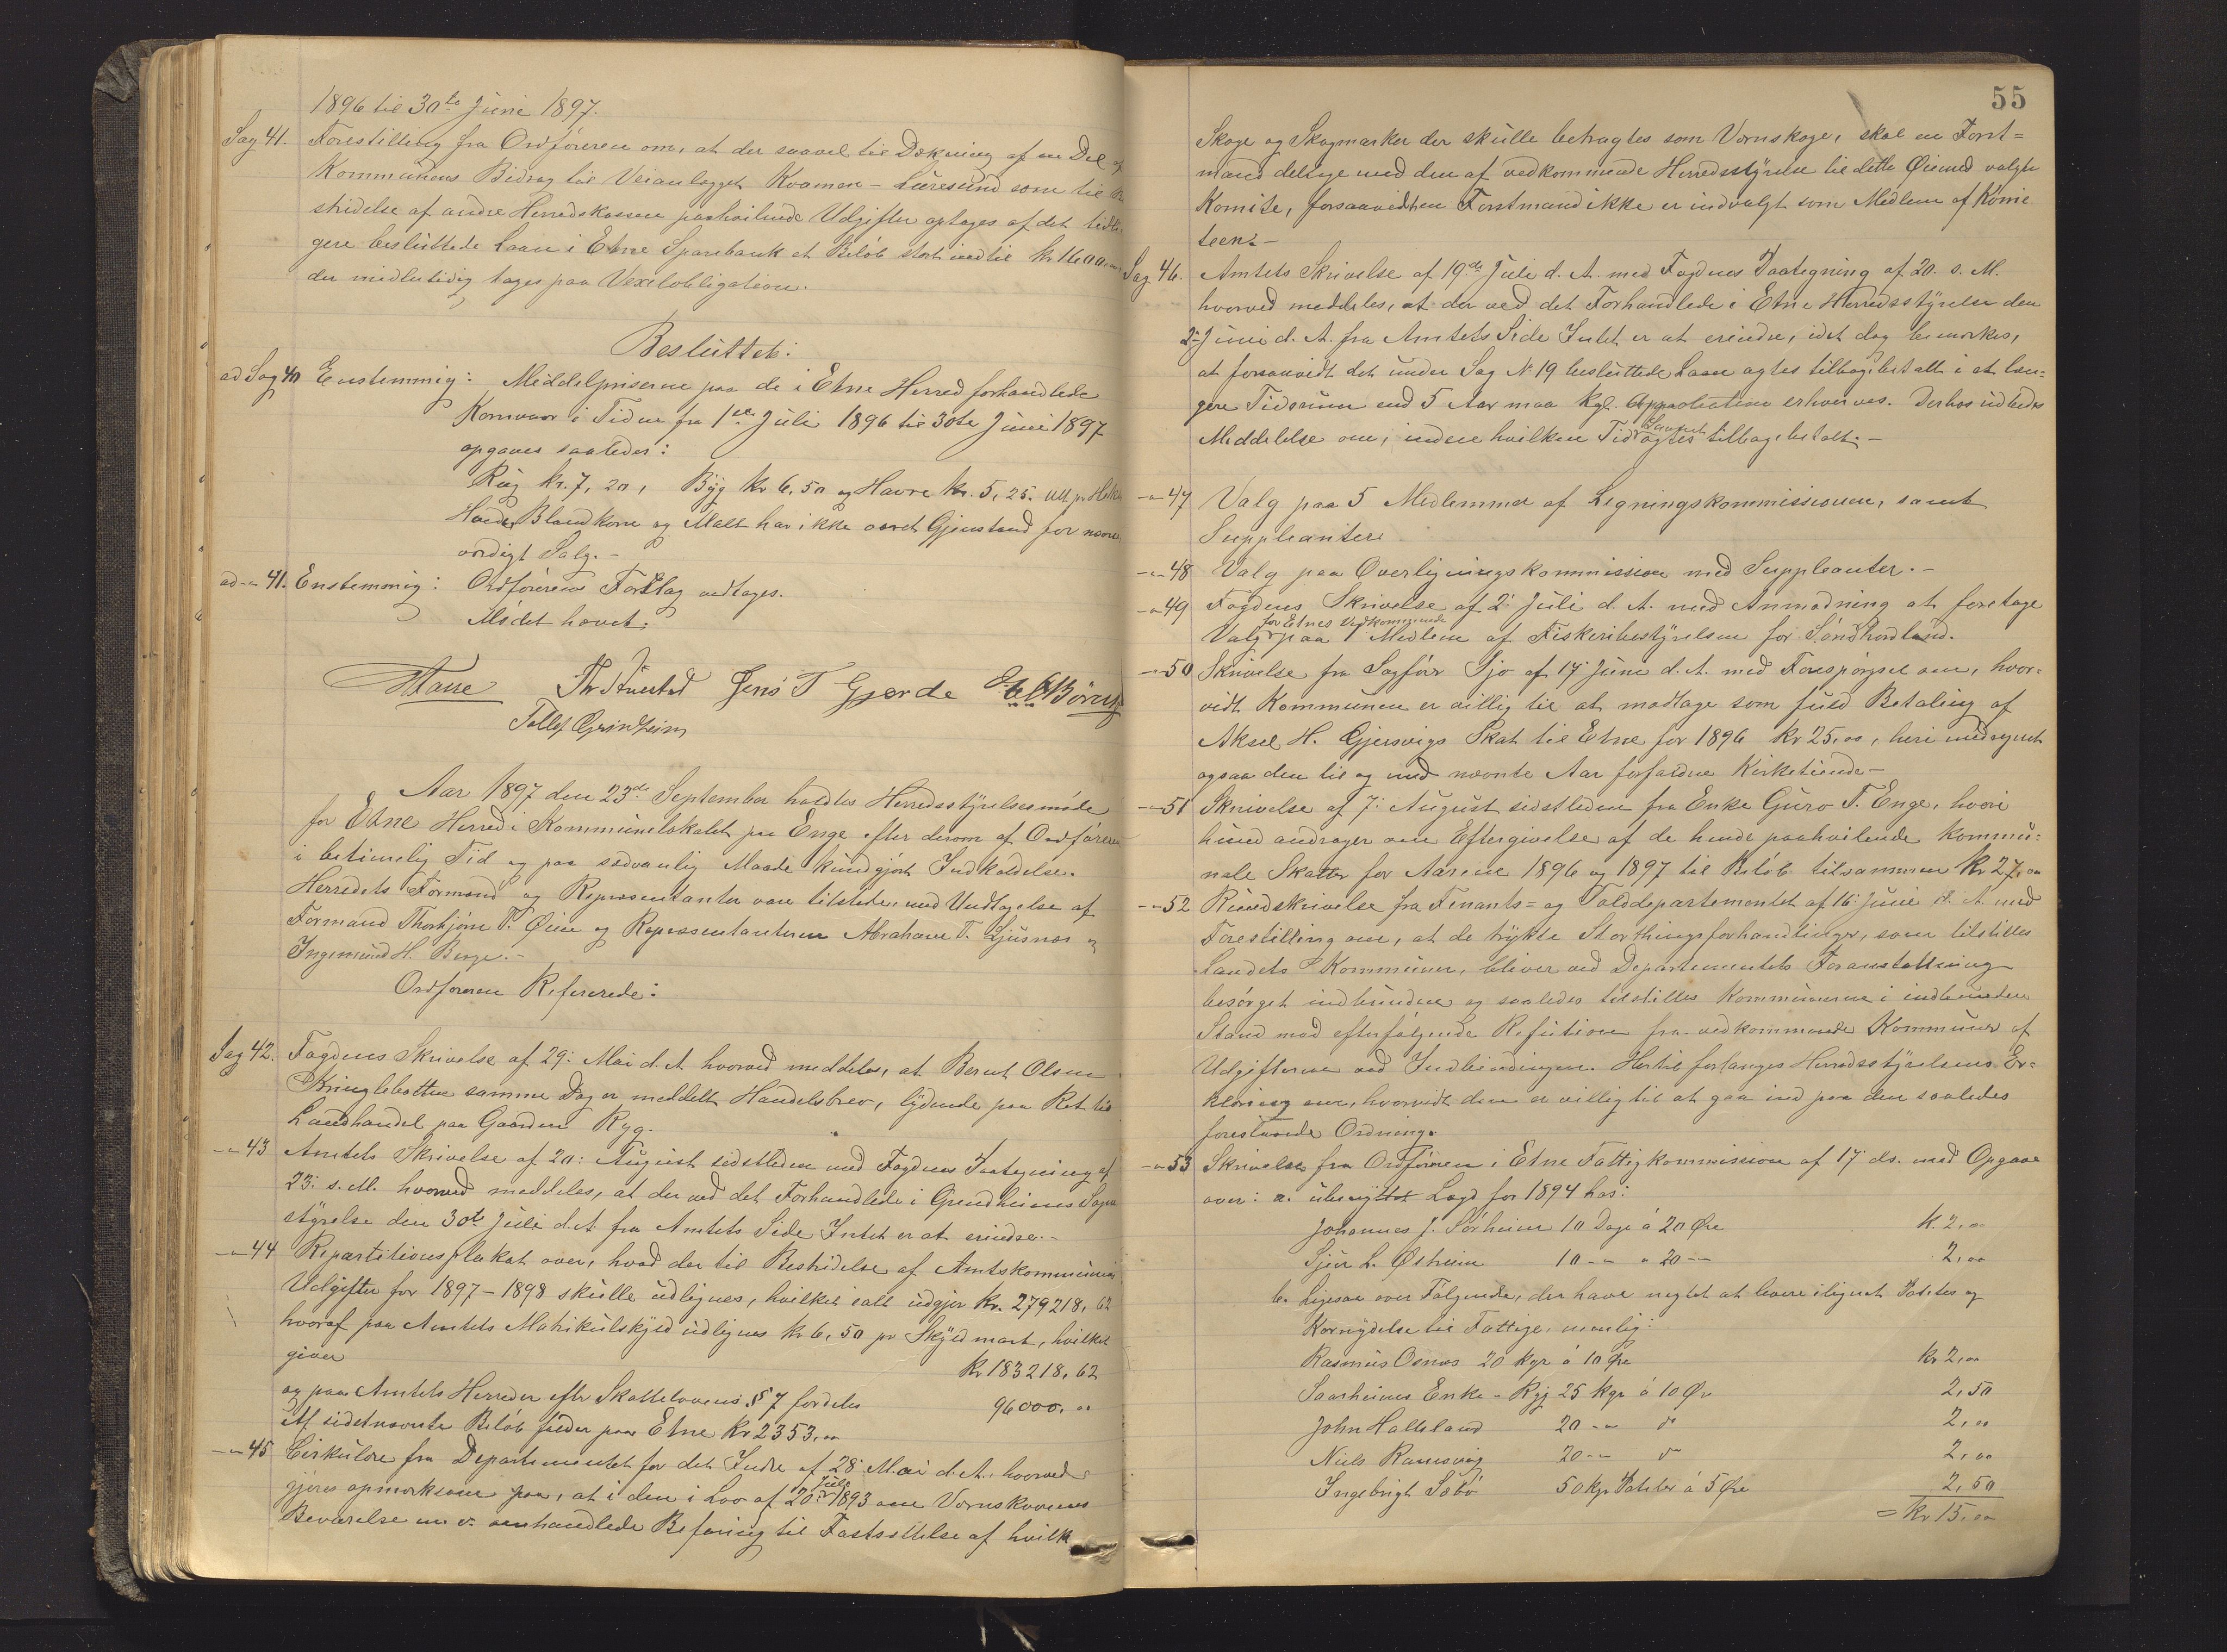 1896 til 30te Juni 1897.
Sag 41. Forestilling fra Ordføreren om, at der saavel til Dækning af en Del af
Kommunens Bidrag til Veianlægget Kvamen - Lüresund som til Be
stridelse af andre Herredskassen paahvilende Udgifter optages af det tidli
gere besluttede Laan i Etne Sparebank et Beløb stort indtil kr 1600,00
der midlertidig tages paa Vexelobligation.
Besluttet:
ad Sag 40 Enstemmig: Middelpriserne paa de i Etne Herred forhandlede
Kornvarer i Tiden fra 1ste Juli 1896 til 30te Juni 1897
opgaves saaledes:
Rüg kr. 7,20, Byg kr 6,50 og Havre kr. 5,25. alt pr Hektol
Hvede, Blandkorn og Malt har ikke været Gjenstand for nævne
værdigt Salg. -
ad -"- 41. Enstemmig: Ordførerens Forslag vedtages.
Mødet hævet.
Jens T Gjerde
Tollef Grindheim
Aar 1897 den 23de September holdtes Herredsstyrelsesmøde
for Etne Herred i Kommunelokalet paa Enge efter derom af Ordføreren
i betimelig Tid og paa sædvanlig Maade kundgjort Indkaldelse.
Herredets Formænd og Repræsentanter vare tilstede med Undtagelse af
Formand Thorbjørn T. Øine og Repræsentanterne Abraham T. Ljusnes og
Ingemund H. Berge. -
Ordføreren Refererede:
Sag 42. Fogdens Skrivelse af 29: Mai d. A. hvorved meddeles, at Bernt Olsen
Kringlebotten samme Dag er meddelt Handelsbrev, lydende paa Ret til
Landhandel paa Gaarden Ryg.
-"- 43 Amtets Skrivelse af 20: August sidstleden med Fogdens Paategning af
23: s. M. hvorved meddeles, at der ved det Forhandlede i Grindheims Sogne
styrelse den 30te Juli d. A. fra Amtets Side Intet er at erindre. -
-"- 44 Repartitionsplakat over, hvad der til Bestridelse af Amtskommunens
Udgifter for 1897 - 1898 skulle udlignes, hvilket ialt udgjør kr. 279218,62
hvoraf paa Amtets Matrikulskyld udlignes kr 6,50 pr Skyldmark, hvilket
giver kr 183218,62
og paa Amtets Herreder efter Skattelovens § 7 fordeles 96000,00
Af sidstnævnte Beløb falder paa Etne kr 2353,00
-"- 45 Cirkulære fra Departementet for det Indre af 28 Mai d. A. hvorved
gjøres opmærksom paa, at i den i Lov af 20: Juli 1893 om Vernskovens
Bevarelse m. v. omhandlede Befaring til Fastsættelse af hvilke
55
Skoge og Skogmarker der skulle betragtes som Vernskoge, skal en Forst=
mand deltage med den af vedkommende Herredsstyrelse til dette Øiemed valgte
Komite, forsaavidt en Forstmand ikke er indvalgt som Medlem af Komi
teen. -
Sag 46. Amtets Skrivelse af 19de Juli d. A. med Fogdens Paategning af 20. s. M.
hvorved meddeles, at der ved det Forhandlede i Etne Herredsstyrelse den
2: Juni d. A. fra Amtets Side Intet er at erindre, idet dog bemærkes,
at forsaavidt det under Sag N 19 besluttede Laan agtes tilbagebetalt i et læn=
gere Tidsrum end 5 Aar maa Kgl. Approbation erhverves. Derhos udbedes
Meddelelse om, inden hvilken Tid Laanet agtes tilbagebetalt. -
-"- 47 Valg paa 5 Medlemmer af Ligningskommissionen, samt
Suppleanter.
-"- 48 Valg paa Overligningskommission med Suppleanter. -
-"- 49 Fogdens Skrivelse af 2 Juli d. A. med Anmodning at foretage
Valg for Etnes Vedkommende paa 1 Medlem af Fiskeribestyrelsen for Søndhordland.
-"- 50 Skrivelse fra Sagfører Sjo af 17 Juni d. A. med Forespørgsel om, hvor=
vidt Kommunen er villig til at modtage som fuld Betaling af
Aksel H. Gjersvigs Skat til Etne for 1896 kr 25,00, heri medregnet
ogsaa den til og med nævnte Aar forfaldne Kirketiende -
-"- 51 Skrivelse af 7: August sidstleden fra Enke Guro T. Enge, hvori
hun andrager om Eftergivelse af de hende paahvilende kommu=
nale Skatter for Aarene 1896 og 1897 til Beløb tilsammen kr 27,00
-"- 52 Rundskrivelse fra Finants= og Tolddepartementet af 16: Juni d. A. med
Forestilling om, at de trykte Storthingsforhandlinger, som tilstilles
Landets Kommuner, bliver ved Departementets Foranstaltning
besørget indbundne og saaledes tilstilles Kommunerne i indbunden
Stand mod efterfølgende Refusion fra vedkommende Kommuner af
Udgifterne ved Indbindingen. Hertil forlanges Herredsstyrelsens Er=
klæring om, hvorvidt den er villig til at gaa ind paa den saaledes
foreslaaede Ordning.
-"- 53 Skrivelse fra Ordføreren i Etne Fattigkommission af 17 ds. med Opgave
over: a. ubenyttet Lægd for 1894 hos:
Johannes J. Sørheim 10 Dage á 20 Øre k. 2,00
Sjur L. Østreim 10 -"- " 20 -"- 2,00
b. Ligesaa over Følgende, der have negtet at levere ilignet Potetes og
Kornydelse til Fattige, nemlig:
Rasmus Osnes 20 kgr á 10 Øre kr 2,00
Saarheims Enke - Ryg 25 kgr á 10 Ør 2,50
John Halleland 20 -"- do 2,00
Niels Ramsvig 20 -"- do 2,00
Ingebrigt Sæbø 50 kgr Poteter á 5 Øre 2,50
= kr 15,00